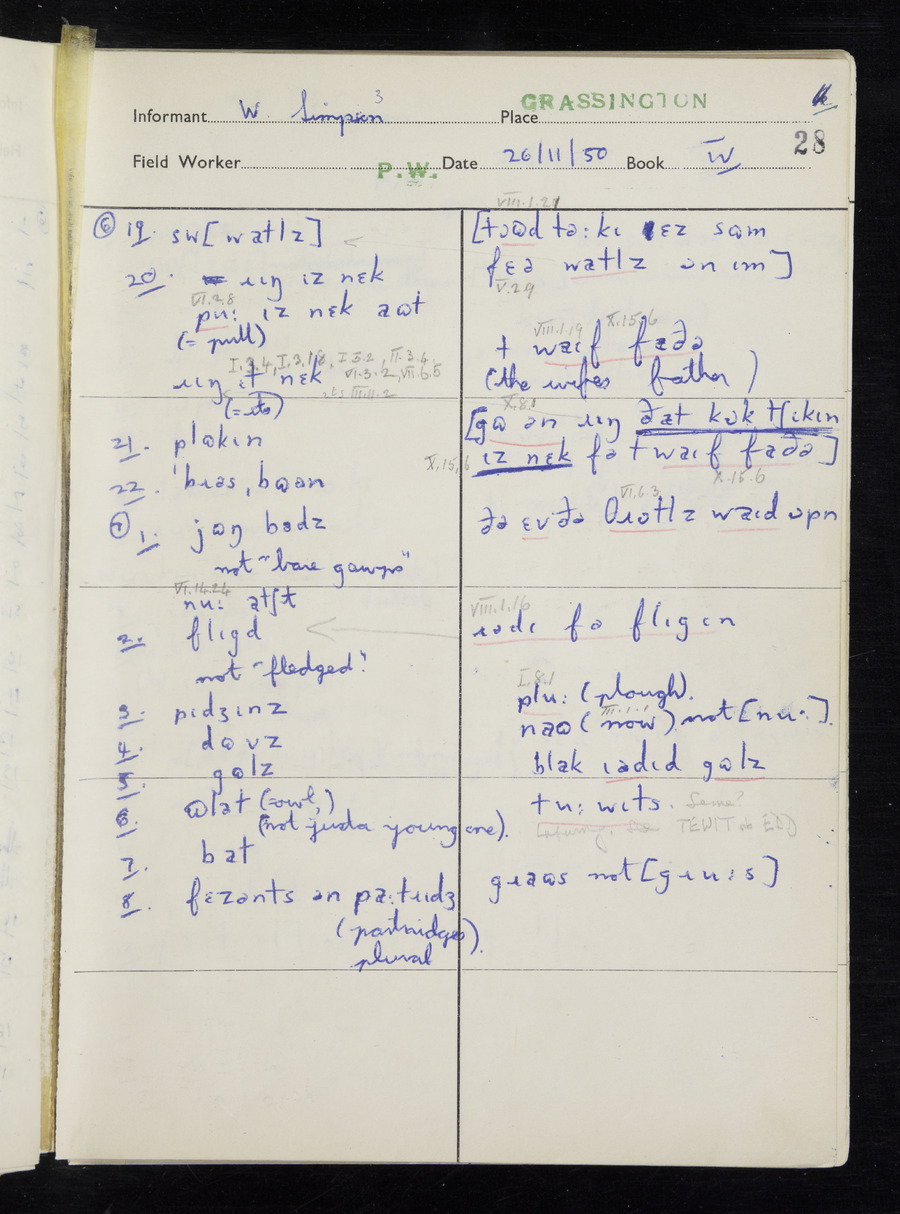 GRASSINGTON
Informant W. Simpson 3 Place
28
Field Worker P.W. Date 26/11/50 Book IV
⑥ 19. sw[watlz]
20. ɹɪŋ ɪz nɛk
VI.2.8
pu: ɪz nɛk aʊt
(= pull)
I.3.4, I.3.18, II.3.4,
VI.3.2, VII.6.5
ɹɪŋ ɪt nɛk
(= its)
21. plʊkɪn
22. bɹɛs, bʊən
⑦ 1. jʊŋ bɔdz
not "bare gawps"
VI.14.24
nu: atʃt
2. flɪgd
not "fledged".
3. pɪdʒɪnz
4. dʊvz
5. gʊlz
6. ʊlət (= owl,)
(not just a young one).
7. bat
8. fɛzənts ən pa:tɹɪdʒ
(partridges
plural).
VIII.1.21
[tɔʊd tə:kɪ ɛz sʊm
fɛə watlz ɒn ɪm]
V.2.9
VIII.1.19 X.15.6
t waɪf faðə
(the wifes father)
X.8.1
[gʊ ən ɹɪŋ ðat kɒk tʃɪkɪn
X.15.6
ɪz nɛk fə t waɪf faðə]
X.15.6
VI.6.3
ðə ɛvðə θɹɔtlz waɪd ɒpn
VIII.1.16
ɹɛdɪ fə flɪgɪn
I.8.1
plu: (plough).
VII.1.1
naʊ (now) not [nu·].
blak ɪədɪd gʊlz
tu: wɪts. Same?
TEWIT do EDD
gɹaʊs not [gɹu:s]